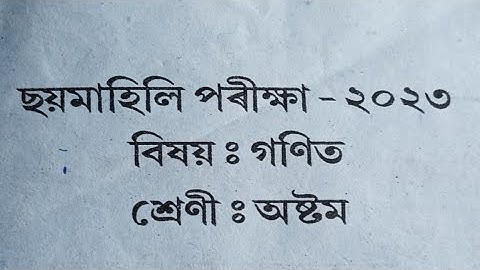 ছয়মাহিলি পৰীক্ষা - ২০২৩
বিষয় : গণিত
শ্ৰেণী : অষ্টম